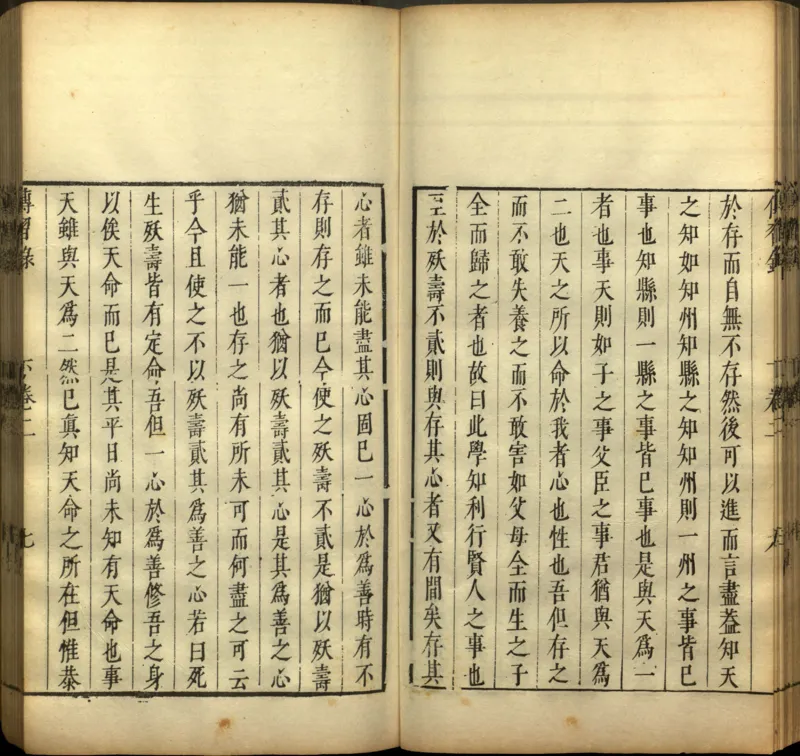 於存而自無不存然後可以進而言盡葢知天
之知如知州知縣之知知州則一州之事皆已
事也知縣則一縣之事皆已事也是與天爲一
者也事天則如子之事父臣之事君猶與天爲
二也天之所以命於我者心也性也吾但存之
而不敢失養之而不敢害如父母全而生之子
全而歸之者也故曰此學知利行賢人之事也
至於殀壽不貳則與存其心者又有間矣存其
心者雖未能盡其心固已一心於爲善時有不
存則存之而已今使之殀壽不貳是猶以殀壽
貳其心者也猶以殀壽貳其心是其爲善之心
猶未能一也存之尚有所未可而何盡之可云
乎今且使之不以殀壽貳其爲善之心若曰死
生殀壽皆有定命吾但一心於爲善修吾之身
以俟天命而已是其平日尚未知有天命也事
天雖與天爲二然已真知天命之所在但惟恭
傳習錄 卷二 七